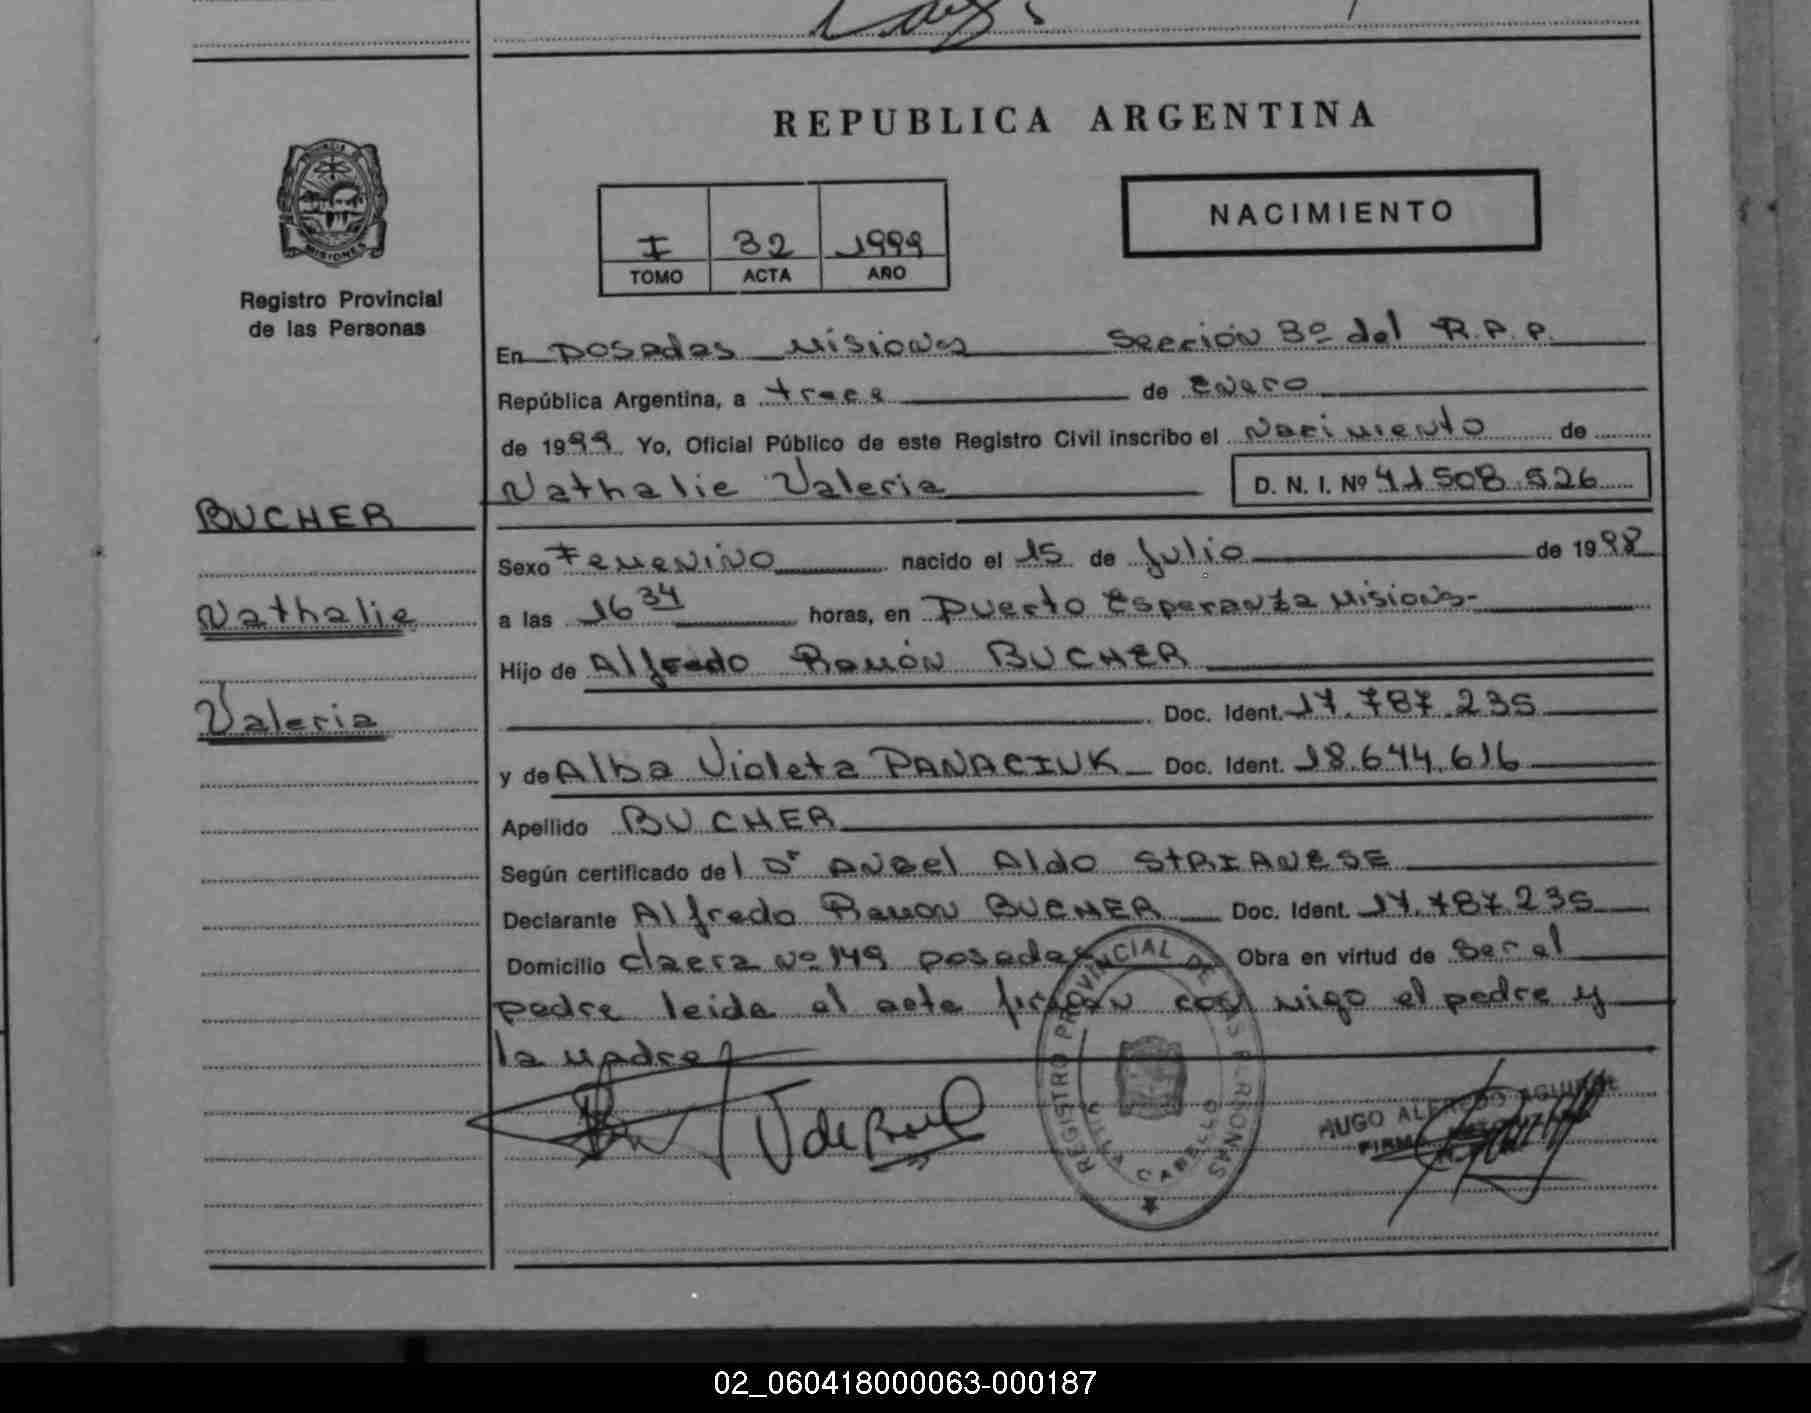 REPUBLICA ARGENTINA
NACIMIENTO
I 32 1999
TOMO ACTA AÑO
PROVINCIA DE
MISIONES
Registro Provincial
de las Personas
En Posadas Misiones Sección 3º del R.P.P.
República Argentina, a trece de Enero
de 1999. Yo, Oficial Público de este Registro Civil inscribo el Nacimiento de
Nathalie Valeria D. N. I. Nº 41508.526
BUCHER
Sexo Femenino nacido el 15 de Julio de 1998
Nathalie
a las 16 34 horas, en Puerto Esperanza Misiones
Hijo de Alfredo Ramón BUCHER
Valeria
Doc. Ident. 17.787.235
y de Alba Violeta PANACIUK Doc. Ident. 18.644.616
Apellido BUCHER
Según certificado del Dr Angel Aldo STRIANESE
Declarante Alfredo Ramon BUCHER Doc. Ident. 17.787.235
Domicilio Nº 149 Posadas Obra en virtud de Ser el
padre leida el acta firman con migo el padre y
la madre
REGISTRO PROVINCIAL DE LAS PERSONAS
CABELLO
HUGO ALFREDO AGUIRRE
FIRMA
02_060418000063-000187